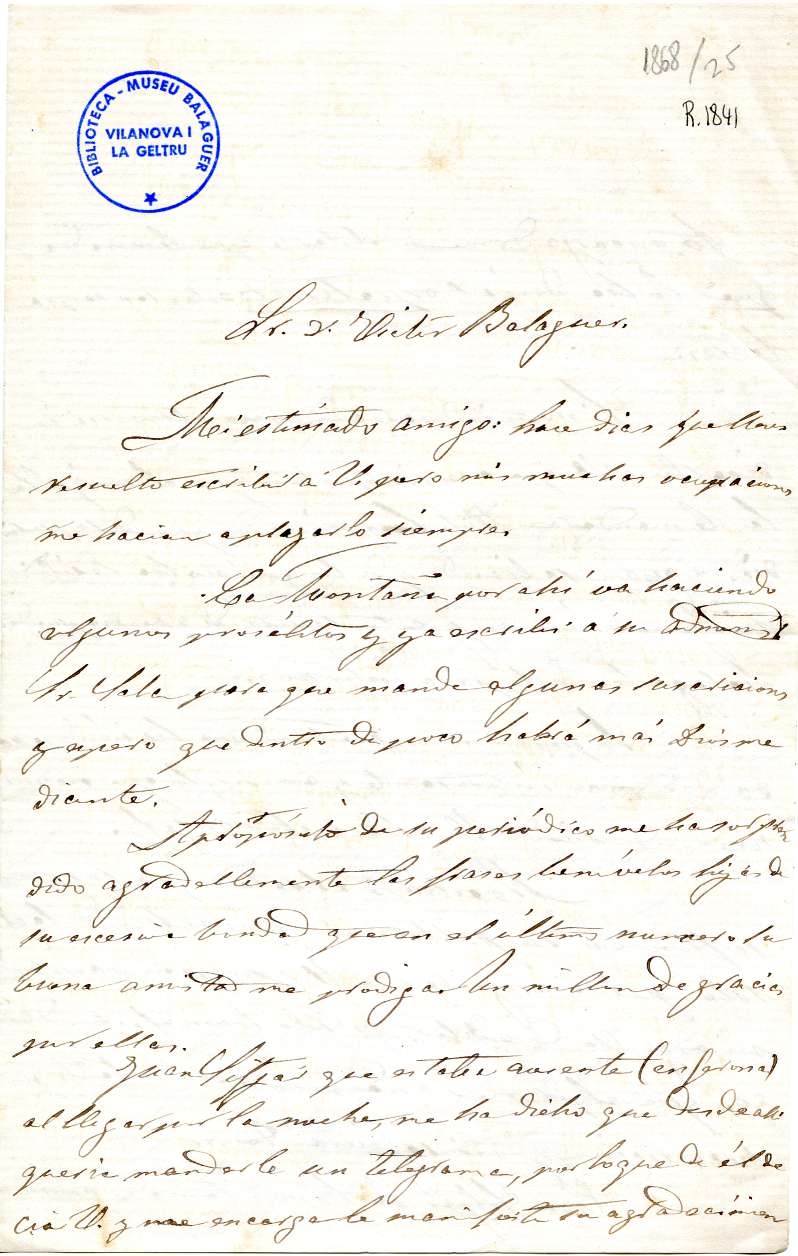 1868/25
R.1841
BIBLIOTECA-MUSEU BALAGUER
VILANOVA I
LA GELTRU
Sr. D. Victor Balaguer.
Mi estimado amigo: hace dias que llevo
resuelto escribir á V. pero mis muchas ocupaciones
me hacian aplazarlo siempre.
La Montaña por ahí va haciendo
algunos prosélitos y ya escribí á su
Sr. Sala para que mande algunas suscriciones
y espero que dentro de poco habrá más Dios me
diante.
Apropósito de su periódico me ha sorpren
dido agradablemente las frases benévolas hijas de
su escesiva bondad que en el último numero su
buena amistad me prodiga. Un millon de gracias
por ellas.
Juan Sitjár que estaba ausente (en Gerona)
al llegar por la noche, me ha dicho que desde allí
queria mandarle un telegrama, por lo que de él de
cia V. y me encarga le manifieste su agradecimien